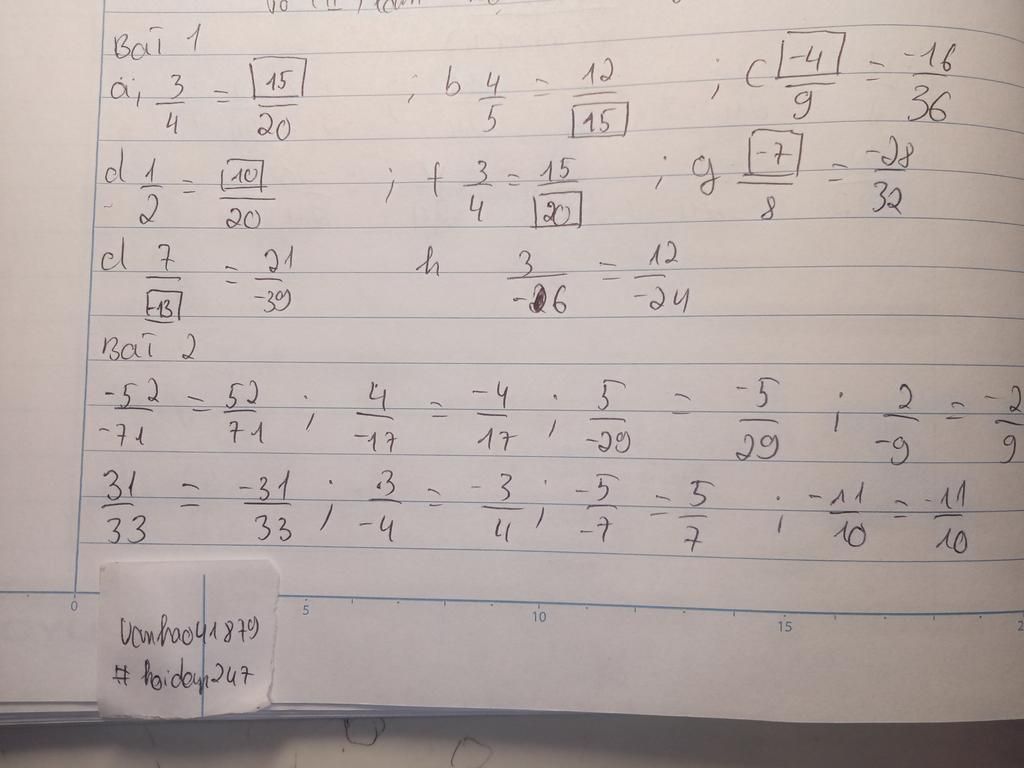 Bài 1
a, 3/4 = 15/20 ; b 4/5 = 12/15 ; c -4/9 = -16/36
d 1/2 = 10/20 ; f 3/4 = 15/20 ; g -7/8 = -28/32
d 7/-13 = 21/-39 h 3/-6 = 12/-24
Bài 2
-52/-71 = 52/71 ; 4/-17 = -4/17 ; 5/-29 = -5/29 ; 2/-9 = -2/9
31/33 = -31/33 ; 3/-4 = -3/4 ; -5/-7 = 5/7 ; -11/10 = -11/10
0 5 10 15
Vanhao41879
# hoidap247